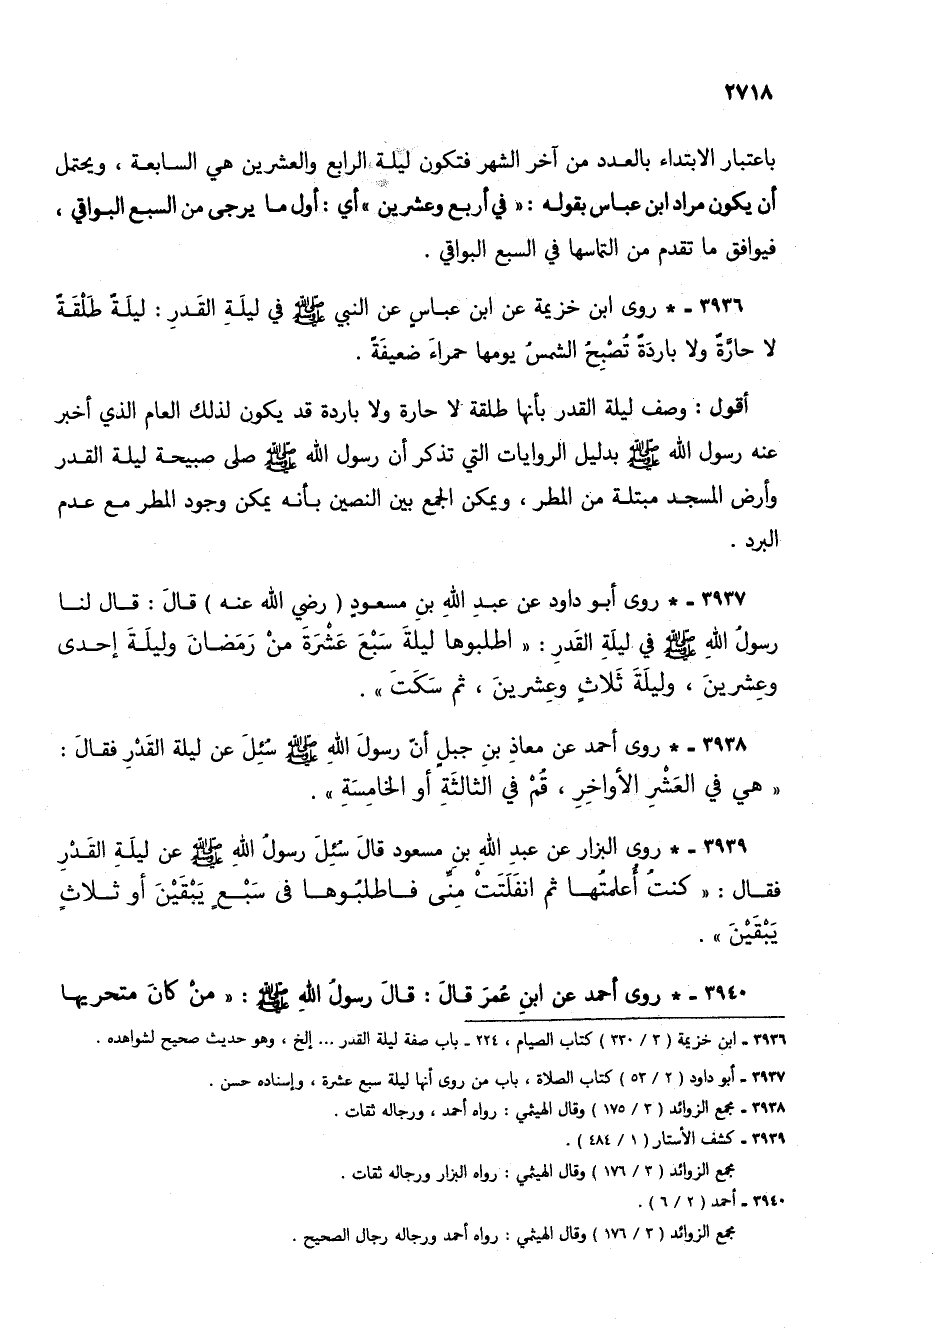 ٢٧١٨
باعتبار الابتداء بالعدد من آخر الشهر فتكون ليلة الرابع والعشرين هي السابعة ، ويحتمل
أن يكون مراد ابن عباس بقوله : « في أربع وعشرين » أي : أول ما يرجى من السبع البواقي ،
فيوافق ما تقدم من التماسها في السبع البواقي .
٣٩٣٦ ـ * روى ابن خزيمة عن ابن عباسٍ عن النبي ﷺ في ليلَةِ القَدرِ : ليلَةٌ طَلْقَةٌ
لا حارَّةٌ ولا باردَةٌ تُصْبِحُ الشمسُ يومها حمراءَ ضعيفَةً .
أقول : وصف ليلة القدر بأنها طلقة لا حارة ولا باردة قد يكون لذلك العام الذي أخبر
عنه رسول الله ﷺ بدليل الروايات التي تذكر أن رسول الله ﷺ صلى صبيحة ليلة القدر
وأرض المسجد مبتلة من المطر ، ويمكن الجمع بين النصين بأنه يمكن وجود المطر مع عدم
البرد .
٣٩٣٧ ـ * روى أبو داود عن عبدِ اللهِ بنِ مسعودٍ ( رضي الله عنه ) قالَ : قال لنا
رسولُ اللهِ ﷺ في ليلَةِ القَدرِ : « اطلبوها ليلةَ سَبْعَ عَشْرَةَ منْ رَمَضانَ وليلَةَ إحدى
وعِشرينَ ، وليلَةَ ثَلاثٍ وعِشرينَ ، ثم سَكَتَ » .
٣٩٣٨ ـ * روى أحمد عن معاذِ بنِ جبلٍ أنّ رسولَ اللهِ ﷺ سُئِلَ عن ليلة القَدْرِ فقالَ :
« هي في العَشْرِ الأواخِرِ ، قُمْ في الثالثَةِ أو الخامِسَةِ » .
٣٩٣٩ ـ * روى البزار عن عبدِ اللهِ بنِ مسعود قالَ سُئِلَ رسولُ اللهِ ﷺ عن ليلَةِ القَدْرِ
فقال : « كنتُ أُعلمتُها ثم انفَلَتَتْ مِنِّى فاطلبُوها فى سَبْعٍ يَبْقَيْنَ أو ثلاثٍ
يَبْقَيْنَ » .
٣٩٤٠ ـ * روى أحمد عن ابنِ عُمَرَ قالَ : قالَ رسولُ اللهِ ﷺ : « منْ كانَ متحريها
٣٩٣٦ ـ ابن خزيمة ( ٣ / ٣٣٠ ) كتاب الصيام ، ٢٢٤ ـ باب صفة ليلة القدر ... إلخ ، وهو حديث صحيح لشواهده .
٣٩٣٧ ـ أبو داود ( ٢ / ٥٣ ) كتاب الصلاة ، باب من روى أنها ليلة سبع عشرة ، وإسناده حسن .
٣٩٣٨ ـ مجمع الزوائد ( ٣ / ١٧٥ ) وقال الهيثمي : رواه أحمد ، ورجاله ثقات .
٣٩٣٩ ـ كشف الأستار ( ١ / ٤٨٤ ) .
مجمع الزوائد ( ٣ / ١٧٦ ) وقال الهيثمي : رواه البزار ورجاله ثقات .
٣٩٤٠ ـ أحمد ( ٢ / ٦ ) .
مجمع الزوائد ( ٣ / ١٧٦ ) وقال الهيثمي : رواه أحمد ورجاله رجال الصحيح .